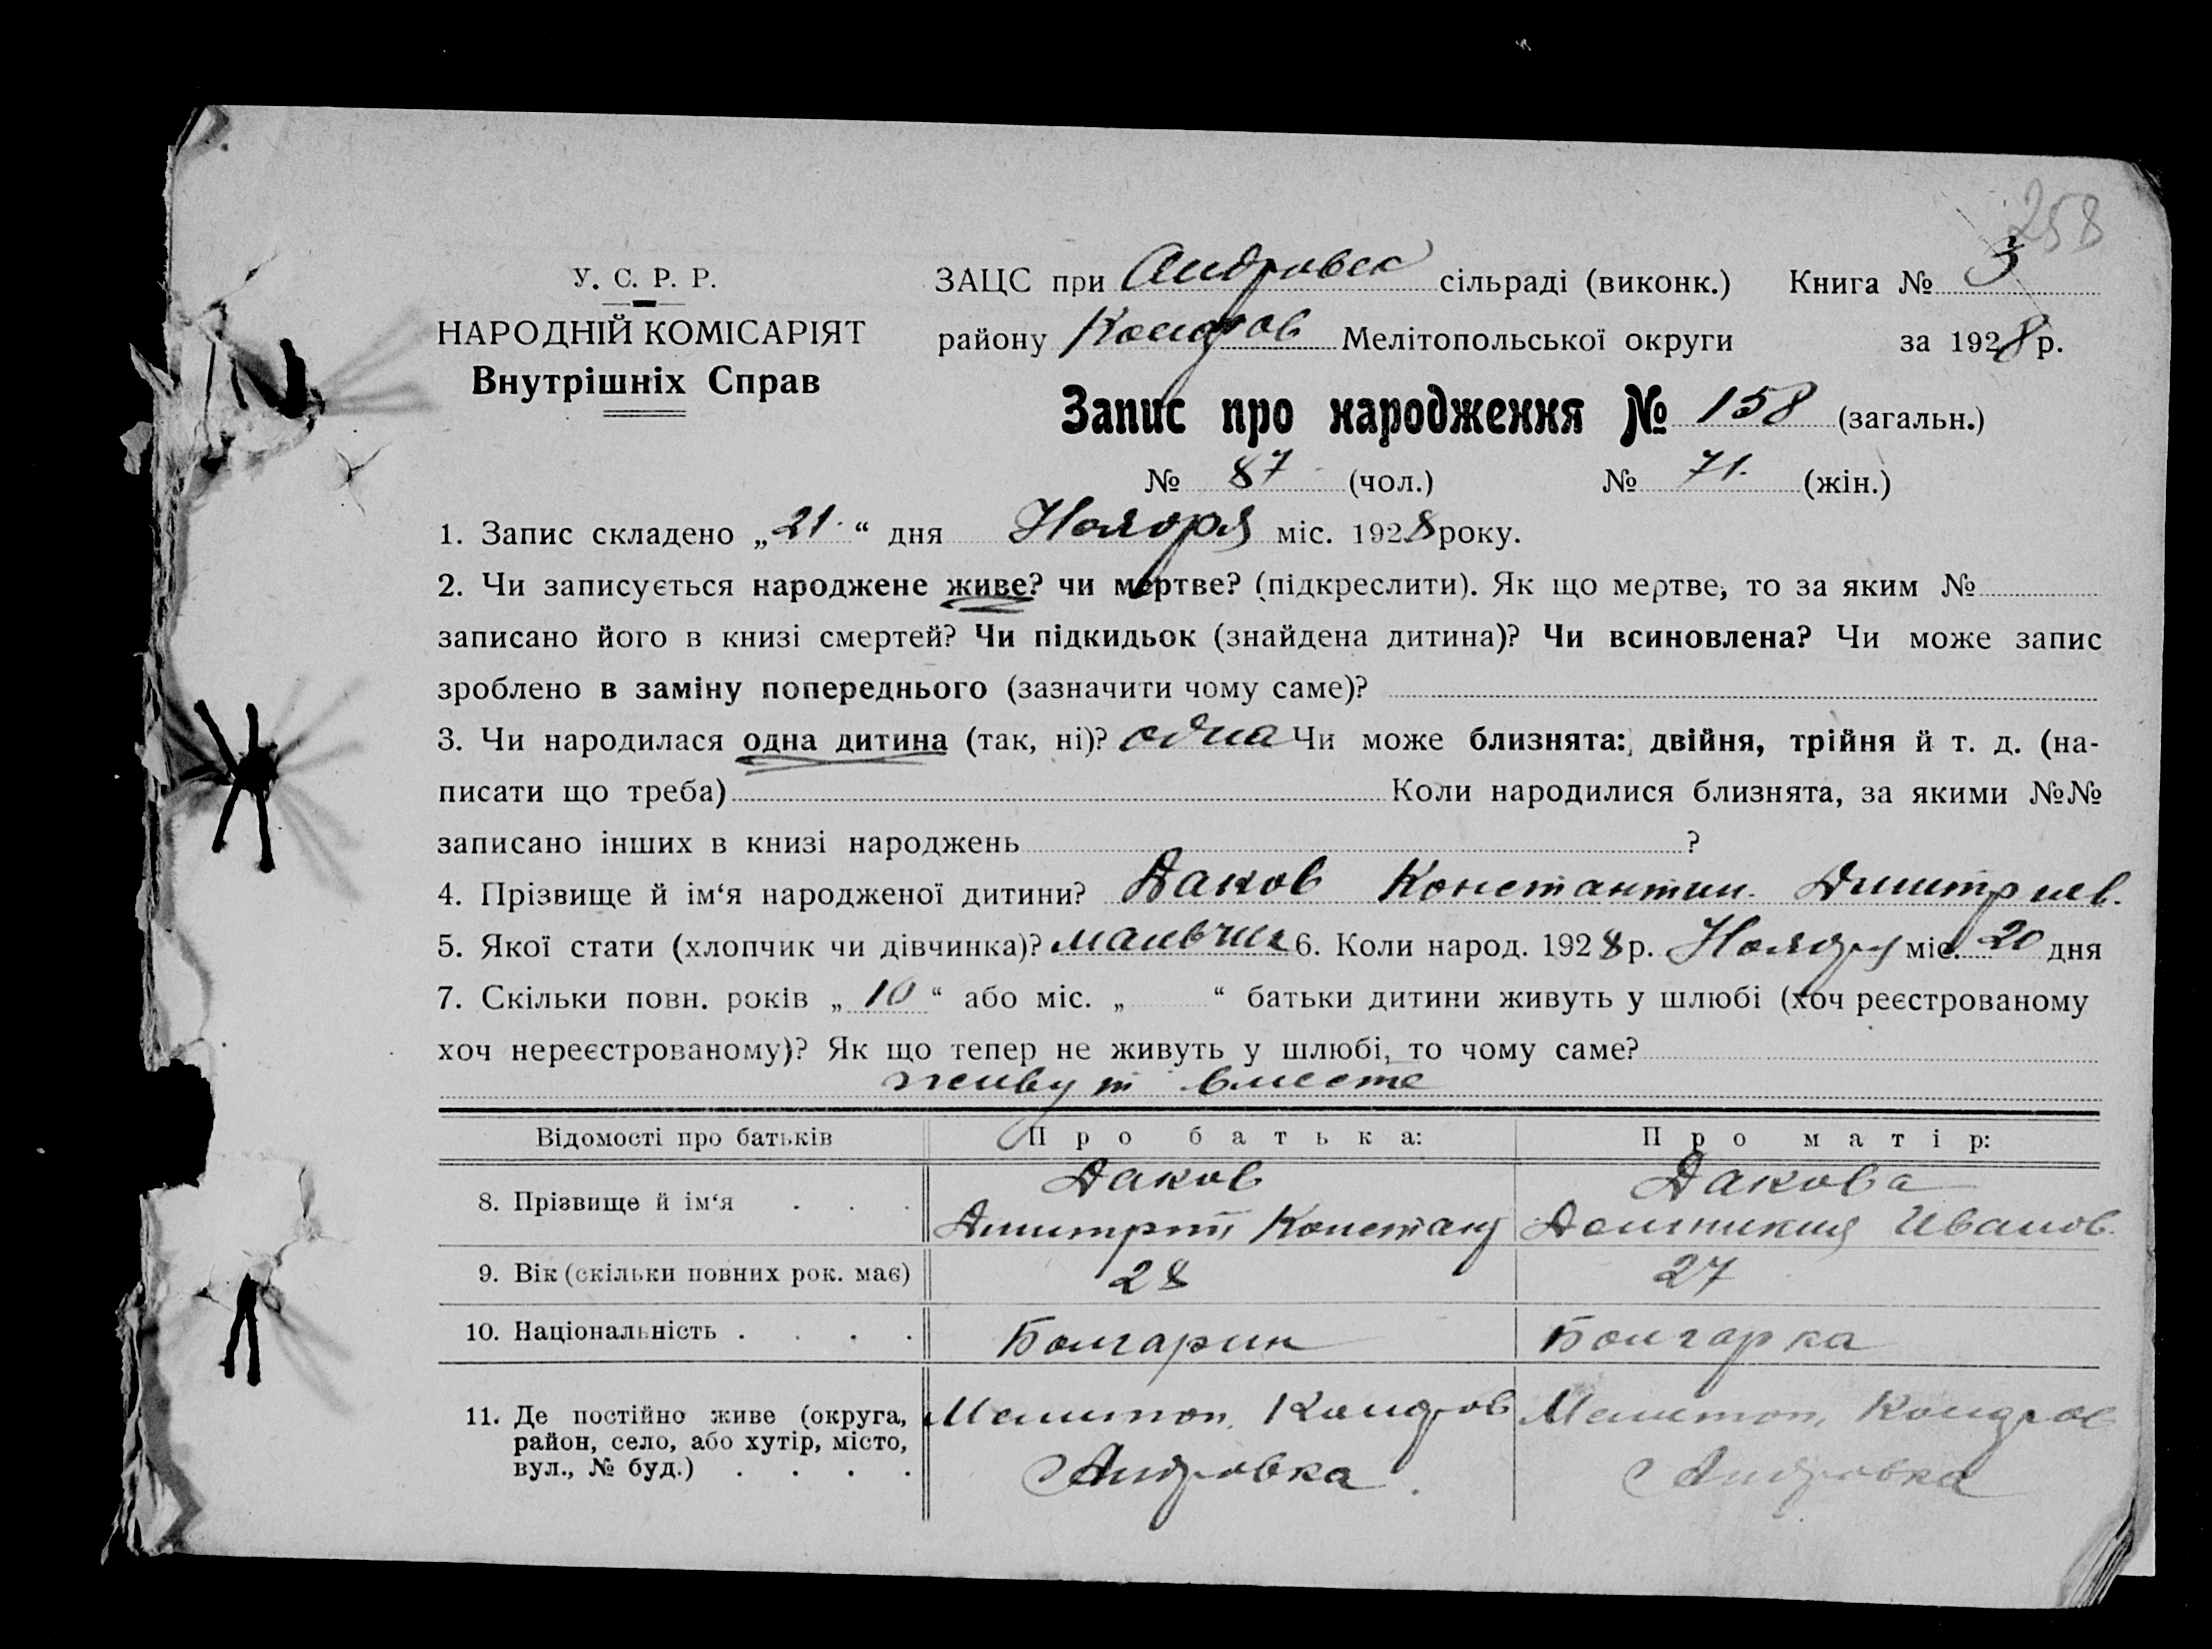 258
У. С. Р. Р.
НАРОДНІЙ КОМІСАРІЯТ
Внутрішніх Справ
ЗАЦС при Андровск сільраді (виконк.) Книга № 3
району Мелітопольської округи за 1928 р.
Запис про народження № 158 (загальн.)
№ 87 (чол.) № 71. (жін.)
1. Запис складено „21“ дня Ноября міс. 1928 року.
2. Чи записується народжене живе? чи мертве? (підкреслити). Як що мертве, то за яким №
записано його в книзі смертей? Чи підкидьок (знайдена дитина)? Чи всиновлена? Чи може запис
зроблено в заміну попереднього (зазначити чому саме)?
3. Чи народилася одна дитина (так, ні)? одна Чи може близнята: двійня, трійня й т. д. (на-
писати що треба) Коли народилися близнята, за якими №№
записано інших в книзі народжень ?
4. Прізвище й ім‘я народженої дитини? Даков Константин. Дмитриев.
5. Якої стати (хлопчик чи дівчинка)? мальчик 6. Коли народ. 1928 р. Ноября міс. 20 дня
7. Скільки повн. років „10“ або міс. „ “ батьки дитини живуть у шлюбі (хоч реєстрованому
хоч нереєстрованому)? Як що тепер не живуть у шлюбі, то чому саме?
живут вместе
Відомості про батьків Про батька: Про матір:
8. Прізвище й ім‘я . . . Даков Дакова
Дмитрий Констант Иванов.
9. Вік (скільки повних рок. має) 28 27
10. Національність . . . . Болгарин Болгарка
11. Де постійно живе (округа, Мелитоп. Мелитоп.
район, село, або хутір, місто,
вул., № буд.) . . . . Андровка. Андровка